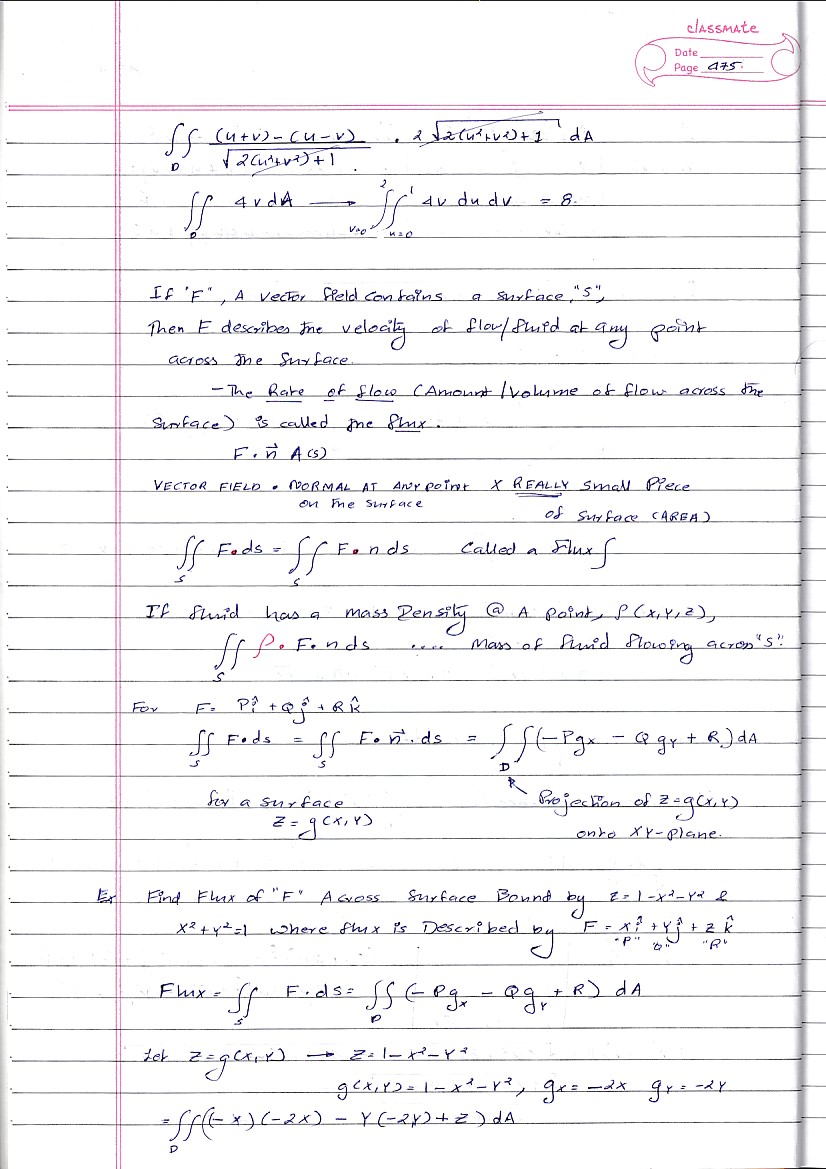 classmate
Date
Page 475.
∬_D ((u+v)-(u-v))/√(2(u²+v²)+1) . 2√(2(u²+v²)+1) dA
∬_D 4v dA → ∫_{v=0}^{2} ∫_{u=0}^{1} 4v du dv = 8.
If 'F", A vector field contains a surface, "S",
Then F describes the velocity of flow/fluid at any point
across the surface.
- The Rate of flow (Amount/volume of flow across the
surface) is called the flux.
F. n⃗ A(s)
VECTOR FIELD • NORMAL AT ANY point X REALLY small Piece
on the surface
of surface (AREA)
∬_S F.ds = ∬_S F.n ds Called a Flux ∫
If fluid has a mass Density @ A point, ρ(x,y,z),
∬_S ρ. F.n ds .... mass of fluid flowing across "S".
For F= Pî + Qĵ + Rk̂
∬_S F.ds = ∬_S F.n⃗.ds = ∬_D (-Pgx - Qgy + R) dA
for a surface Projection of z=g(x,y)
z = g(x,y) onto XY-plane.
Ex Find Flux of "F" Across Surface Bound by z=1-x²-y² &
x²+y²=1 where flux is Described by F = xî + yĵ + zk̂
"P" "Q" "R"
Flux = ∬_S F.ds = ∬_D (-Pgx - Qgy + R) dA
Let z=g(x,y) → z=1-x²-y²
g(x,y)=1-x²-y², gx=-2x gy=-2y
=∬_D ((-x)(-2x) - y(-2y)+z) dA